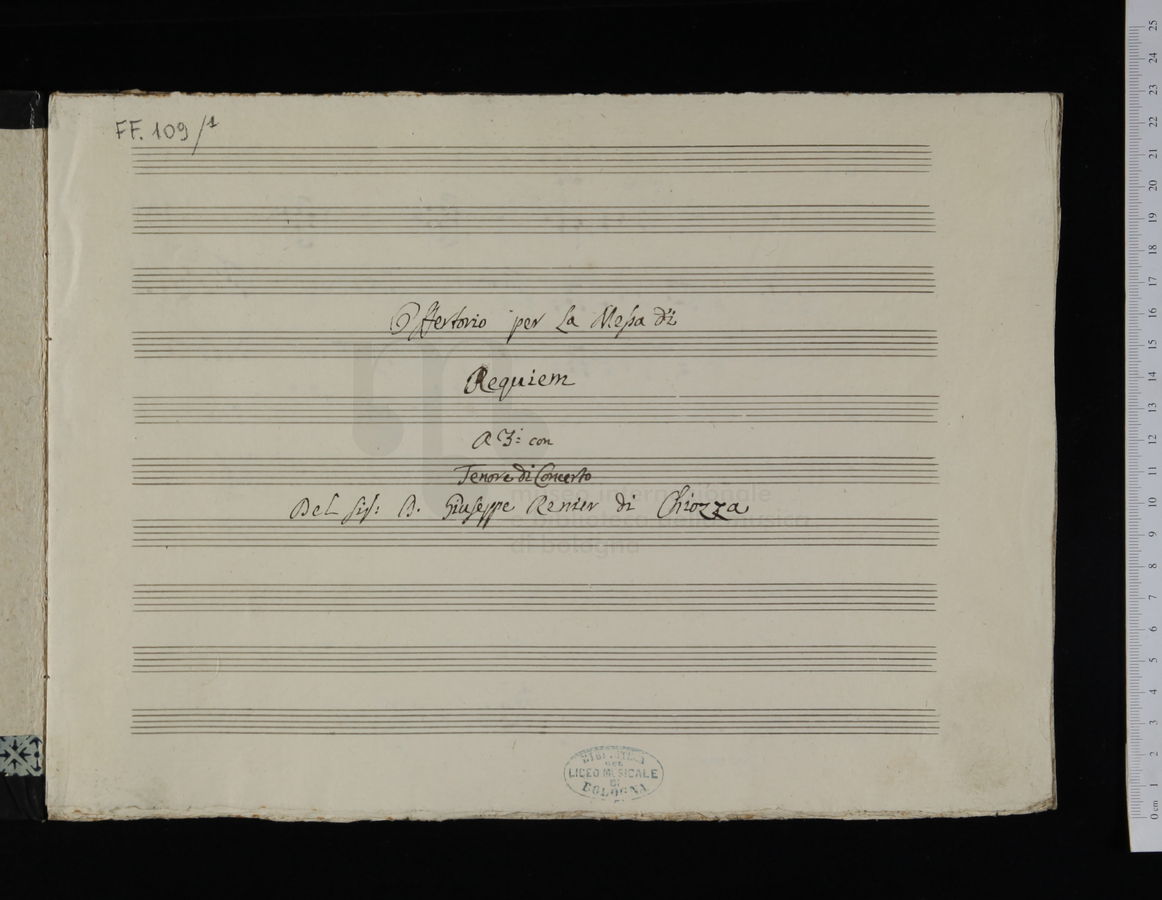 FF. 109/1
Offertorio per La Messa di
Requiem
A 3: con
Tenore di Concerto
Del Sig: D. Giuseppe Renier di Chiozza
museo internazionale
e biblioteca della musica
di bologna
BIBLIOTECA
DEL
LICEO MUSICALE
DI
BOLOGNA
25
24
23
22
21
20
19
18
17
16
15
14
13
12
11
10
9
8
7
6
5
4
3
2
1
0 cm